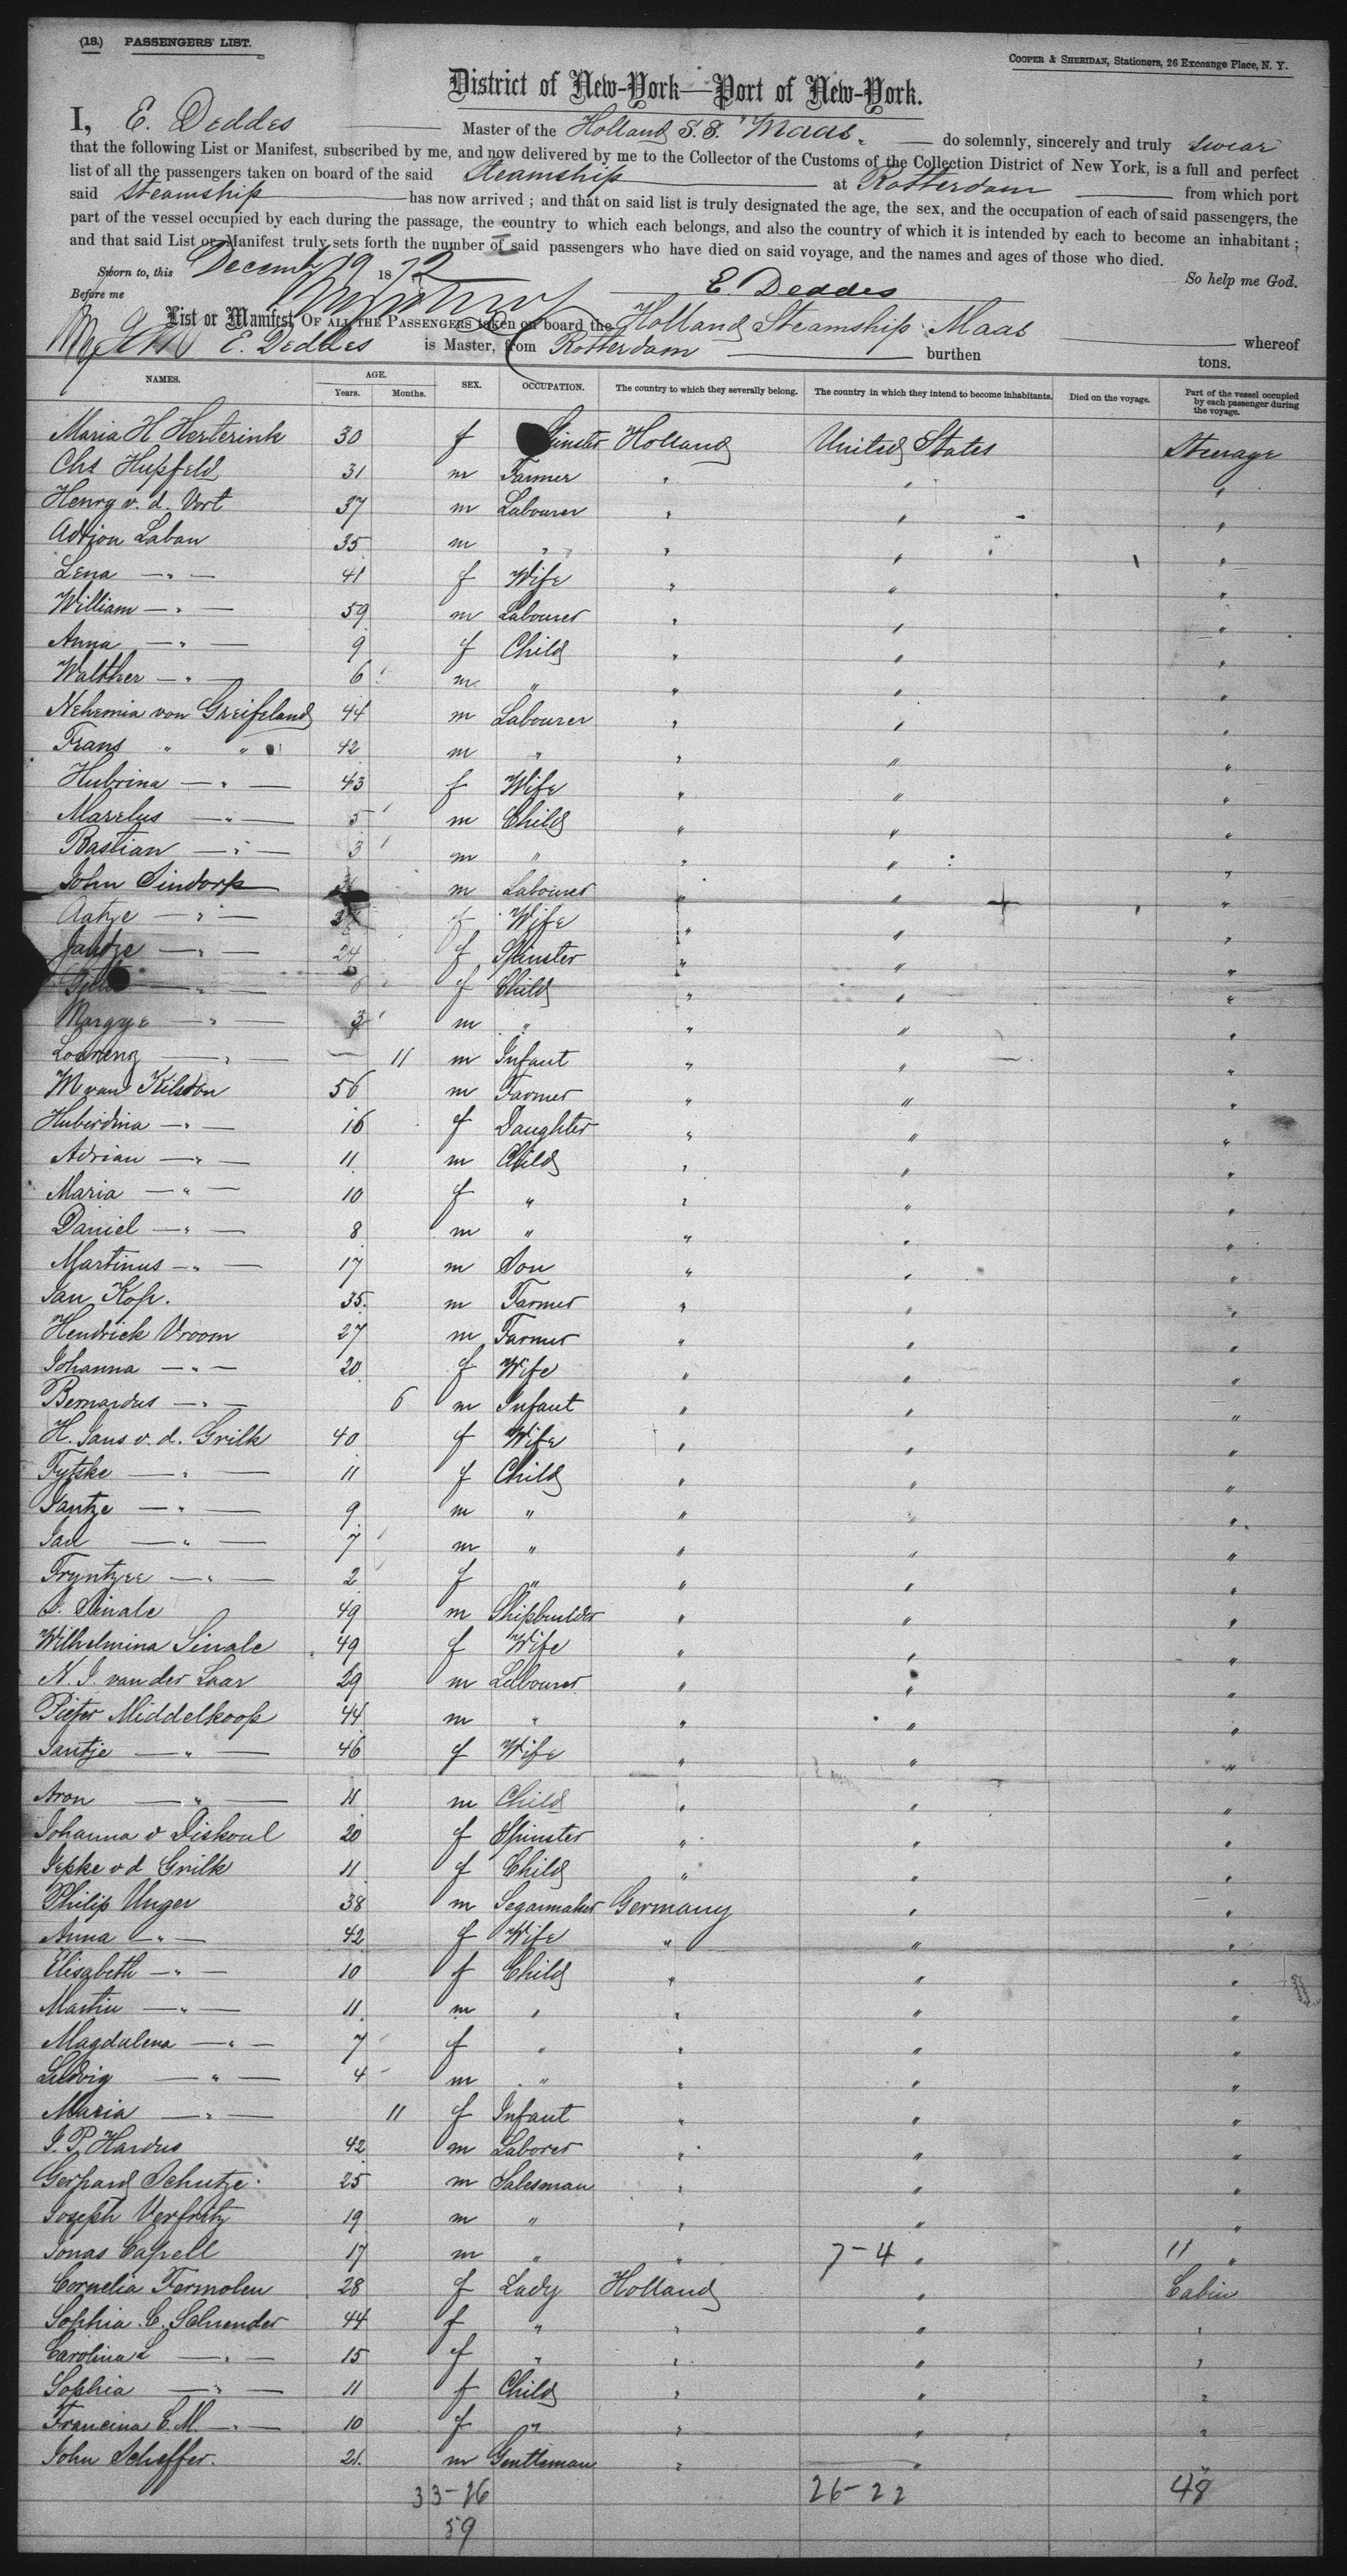 (18.) PASSENGERS' LIST.
COOPER & SHERIDAN, Stationers, 26 Exchange Place, N. Y.
District of New-York—Port of New-York.
I, E. Deddes Master of the Holland S.S. "Maas" do solemnly, sincerely and truly swear
that the following List or Manifest, subscribed by me, and now delivered by me to the Collector of the Customs of the Collection District of New York, is a full and perfect
list of all the passengers taken on board of the said Steamship at Rotterdam from which port
said Steamship has now arrived ; and that on said list is truly designated the age, the sex, and the occupation of each of said passengers, the
part of the vessel occupied by each during the passage, the country to which each belongs, and also the country of which it is intended by each to become an inhabitant ;
and that said List or Manifest truly sets forth the number of said passengers who have died on said voyage, and the names and ages of those who died.
Sworn to, this December 19 1872 So help me God.
Before me E. Deddes
List or Manifest OF ALL THE PASSENGERS taken on board the Holland Steamship Maas whereof
E. Deddes is Master, from Rotterdam burthen tons.
NAMES. AGE. Years. Months. SEX. OCCUPATION. The country to which they severally belong. The country in which they intend to become inhabitants. Died on the voyage. Part of the vessel occupied by each passenger during the voyage.
Maria H Herterink 30 f Spinster Holland United States Steerage
Chs Hupfeld 31 m Farmer " " "
Henry v. d. Vort 37 m Labourer " " "
Adrion Laban 35 m " " " "
Lena — " — 41 f Wife " " "
William — " — 59 m Labourer " " "
Anna — " — 9 f Child " " "
Walther — " — 6 m " " " "
Nehemia von Greifeland 44 m Labourer " " "
Frans " " 42 m " " " "
Hubrina — " — 43 f Wife " " "
Marelus — " — 5 m Child " " "
Bastian — " — 3 m " " " "
John Sindorp m Labourer " " "
Aatje — " — f Wife " " "
Jantze — " — 24 f Spinster " " "
— " — f Child " " "
Margye — " — 3 m " " " "
Lourenz — " — — 11 m Infant " " "
M van Kilsdon 56 m Farmer " " "
Huberdina — " — 16 f Daughter " " "
Adrian — " — 11 m Child " " "
Maria — " — 10 f " " " "
Daniel — " — 8 m " " " "
Martinus — " — 17 m Son " " "
Jan Kop. 35 m Farmer " " "
Hendrick Vroom 27 m Farmer " " "
Johanna — " — 20 f Wife " " "
Bernardus — " — 6 m Infant " " "
H. Jans v. d. Grilk 40 f Wife " " "
Fytske — " — 11 f Child " " "
Jantze — " — 9 m " " " "
Jan — " — 7 m " " " "
Tryntzee — " — 2 f " " " "
J. Sinale 49 m Shipbuilder " " "
Wilhelmina Sinale 49 f Wife " " "
N. J. van der Laar 29 m Labourer " " "
Pieter Middelkoop 44 m " " " "
Jantje — " — 46 f Wife " " "
Aron — " — 11 m Child " " "
Johanna v Diskoul 20 f Spinster " " "
Jepke v d Grilk 11 f Child " " "
Philip Unger 38 m Segarmaker Germany " "
Anna — " — 42 f Wife " " "
Elisabeth — " — 10 f Child " " "
Martin — " — 11 m " " " "
Magdalena — " — 7 f " " " "
Ludwig — " — 4 m " " " "
Maria — " — 11 f Infant " " "
J. P. Hardus 42 m Laborer " " "
Gerhard Schutze 25 m Salesman " " "
Joseph Verfritz 19 m " " " "
Jonas Capell 17 m " " 7-4 " 11 "
Cornelia Termolen 28 f Lady Holland " Cabin
Sophia C. Schuender 44 f " " " "
Carolina L — " — 15 f " " " "
Sophia — " — 11 f Child " " "
Francina C. M. — " — 10 f " " " "
John Scheffer. 21. m Gentleman " " "
33-26 26-22 48
59